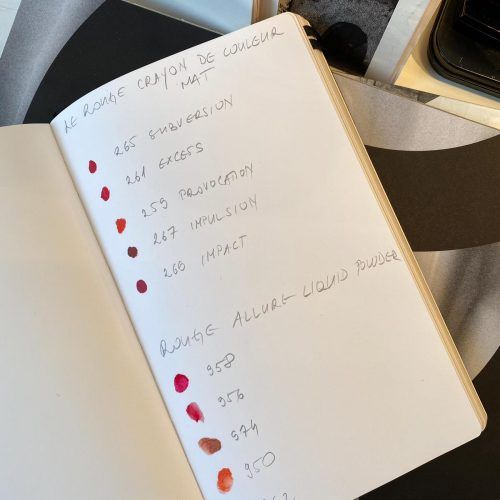 LE ROUGE CRAYON DE COULEUR
MAT
265 SUBVERSION
261 EXCESS
259 PROVOCATION
267 IMPULSION
269 IMPACT
ROUGE ALLURE LIQUID POWDER
958
956
974
950